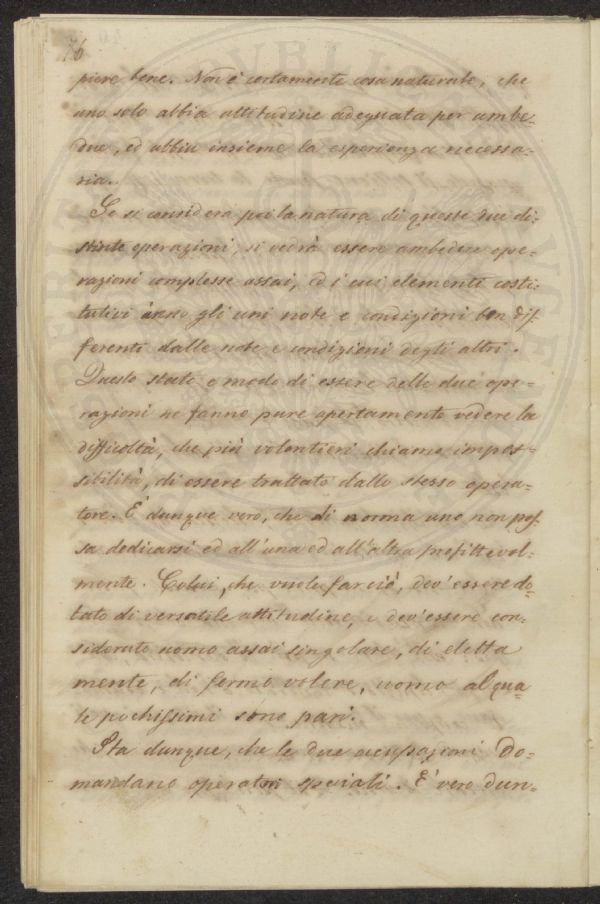 76
piere bene. Non è certamente cosa naturale, che
uno solo abbia attitudine adeguata per ambe-
due, ed abbia insieme la esperienza necessa-
ria.
Se si considera poi la natura di queste due di-
stinte operazioni, si vedrà essere ambedue ope-
razioni complesse assai, ed i cui elementi costi-
tutivi ànno gli uni note e condizioni ben dif-
ferenti dalle note e condizioni degli altri.
Questo stato e modo di essere delle due ope-
razioni ne fanno pure apertamente vedere la
difficoltà, che più volentieri chiamo impos-
sibilità, di essere trattate dallo stesso opera-
tore. È dunque vero, che di norma uno non pos-
sa dedicarsi ed all'una ed all'altra profittevol-
mente. Colui, che vuole far ciò, dev'essere do-
tato di versatile attitudine, e dev'essere con-
siderato uomo assai singolare, di eletta
mente, di fermo volere, uomo al qua-
le pochissimi sono pari.
Sta dunque, che le due occupazioni do-
mandano operatori speciali. È vero dun-